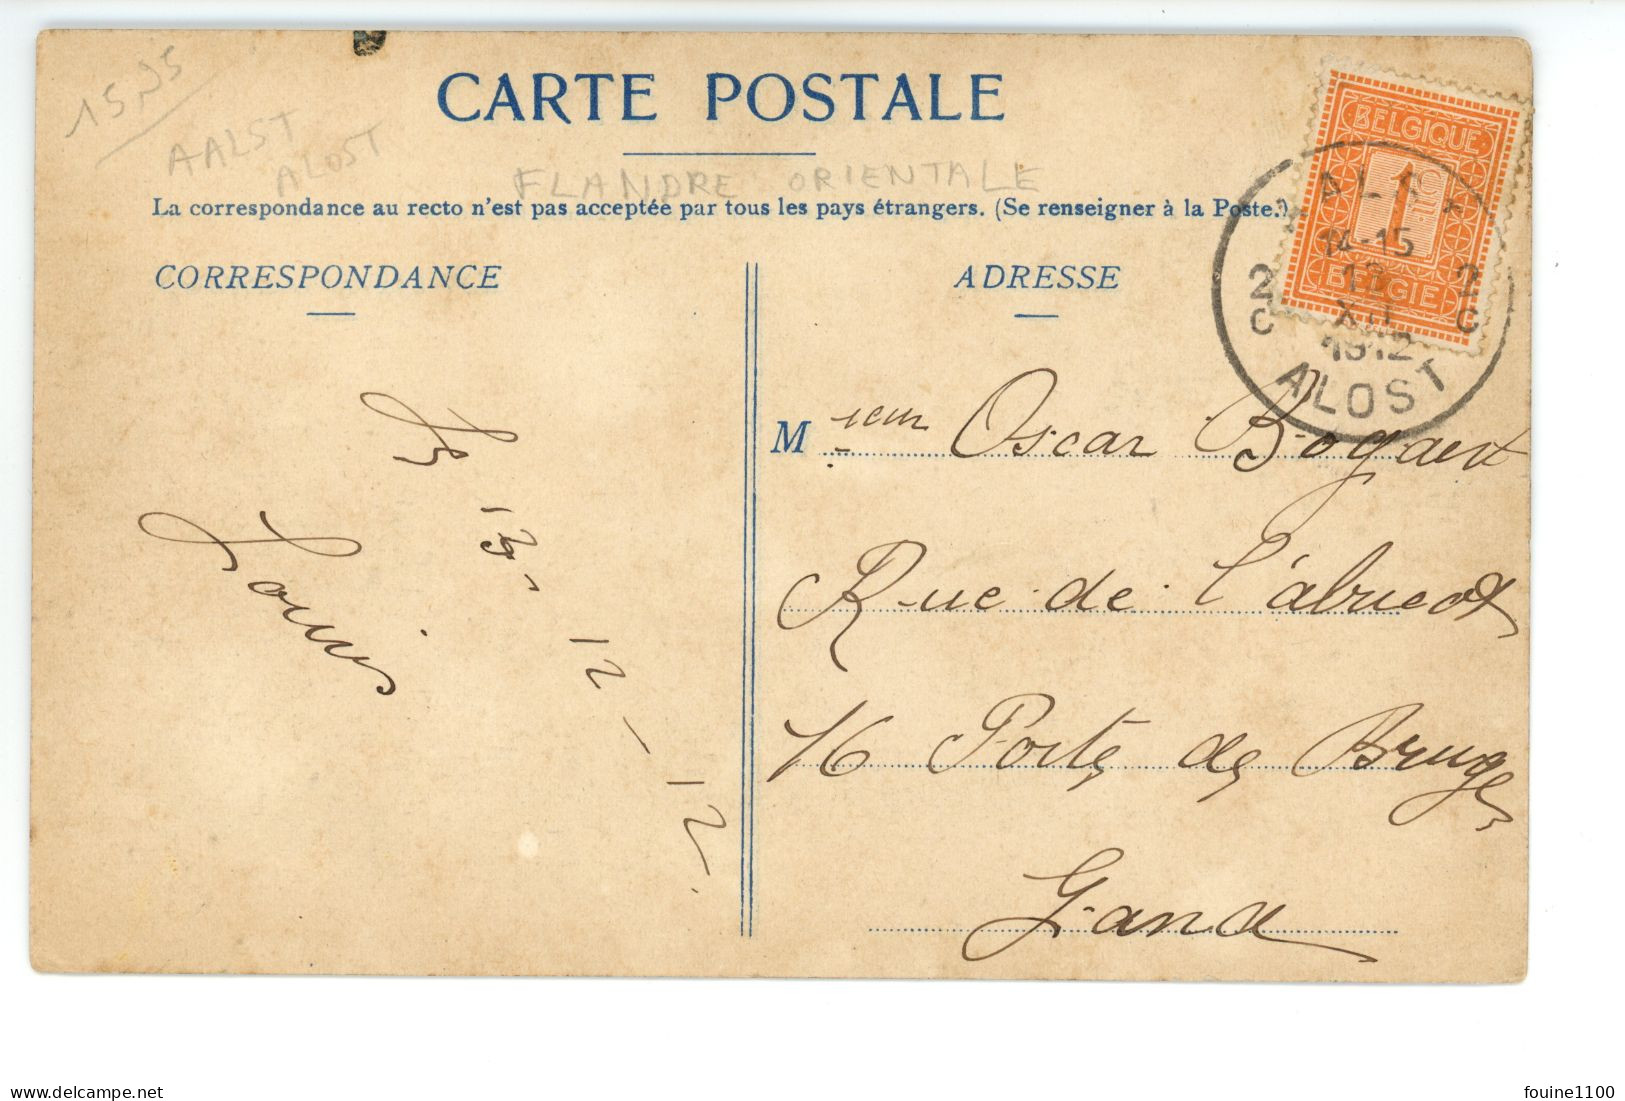 15,95
AALST
ALOST
CARTE POSTALE
FLANDRE ORIENTALE
La correspondance au recto n'est pas acceptée par tous les pays étrangers. (Se renseigner à la Poste.)
CORRESPONDANCE
ADRESSE
BELGIQUE
1c
BELGIE
14-15
XII
1912
2
C
2
C
ALOST
Mieur Oscar Bogaert
Rue de l'abricot
16 Porte de Bruges
Gand
12 - 12.
Louis
fouine1100